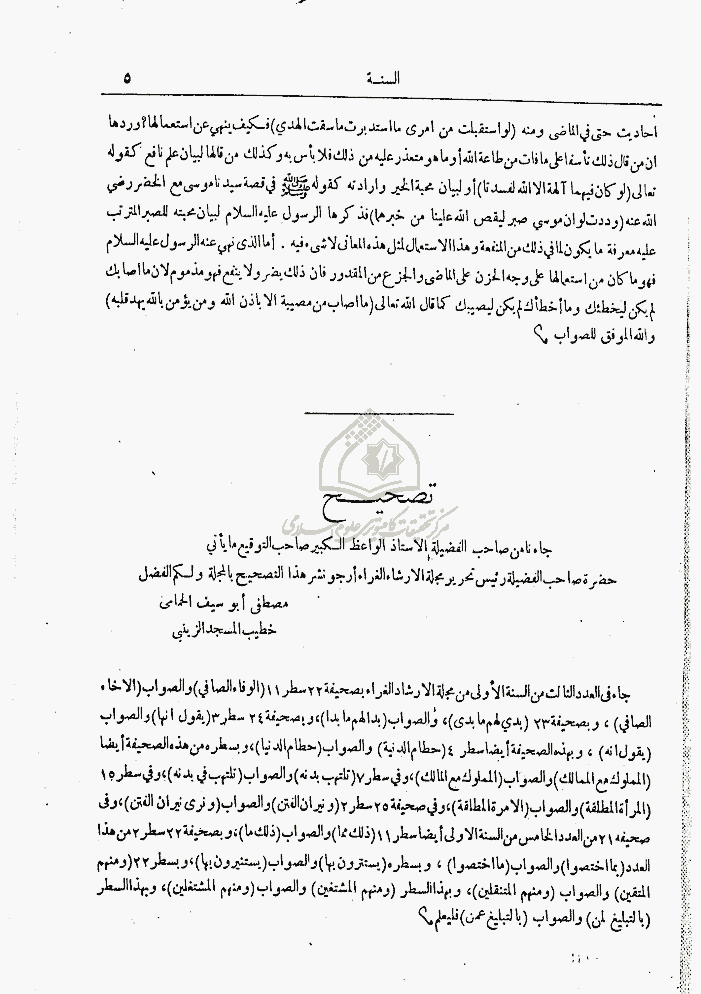 السنة ٥
أحاديث حتى في الماضى ومنه (لو استقبلت من امرى ما استدبرت ما سقت الهدي) فكيف ينهي عن استعمالها؟ وردها
ان من قال ذلك تأسفا على ما فات من طاعة الله أو ما هو متعذر عليه من ذلك فلا بأس به وكذلك من قالها لبيان علم نافع كقوله
تعالى (لو كان فيهما آلهة الا الله لفسدتا) أو لبيان محبة الخير وارادته كقوله ﷺ في قصة سيدنا موسى مع الخضر رضي
الله عنه (وددت لو ان موسي صبر ليقص الله علينا من خبرهما) فذكرها الرسول عليه السلام لبيان محبته للصبر المترتب
عليه معرفة ما يكون لها في ذلك من المنفعة وهذا الاستعمال لمثل هذه المعانى لا شىء فيه . أما الذى نهي عنه الرسول عليه السلام
فهو ما كان من استعمالها على وجه الحزن على الماضى والجزع من المقدور فان ذلك يضر ولا ينفع فهو مذموم لان ما اصابك
لم يكن ليخطئك وما أخطأك لم يكن ليصيبك كما قال الله تعالى (ما اصاب من مصيبة الا باذن الله ومن يؤمن بالله يهد قلبه)
والله الموفق للصواب
تصحيح
مركز تحقيقات كامپيوترى علوم اسلامى
جاءنا من صاحب الفضيلة الاستاذ الواعظ الكبير صاحب التوقيع ما يأتي
حضرة صاحب الفضيلة رئيس تحرير مجلة الارشاد الغراء أرجو نشر هذا التصحيح بالمجلة ولكم الفضل
مصطفى أبو سيف الحمامى
خطيب المسجد الزينبي
جاء فى العدد الثالث من السنة الأولى من مجلة الارشاد الغراء بصحيفة ٢٢ سطر ١١ (الوفاء الصافي) والصواب (الاخاء
الصافي) ، وبصحيفة ٢٣ (بدي لهم ما بدى)، والصواب (بدا لهم ما بدا)، وبصحيفة ٢٤ سطر ٣ (يقول انها) والصواب
(يقول انه) ، وبهذه الصحيفة أيضا سطر ٤ (حطام الدنية) والصواب (حطام الدنيا)، وبسطر ٥ من هذه الصحيفة أيضا
(المملوك مع الممالك) والصواب (المملوك مع المالك)، وفي سطر ٧ (تلتهب بدنه) والصواب (تلتهب في بدنه)، وفي سطر ١٥
(المرأة المطلقة) والصواب (الامرة المطلقة)، وفي صحيفة ٢٥ سطر ٢ (ونيران الفتن) والصواب (ونرى نيران الفتن)، وفى
صحيفه ٢١ من العدد الخامس من السنة الاولى أيضا سطر ١١ (ذلك مما) والصواب (ذلك ما)، وبصحيفة ٢٢ سطر ٢ من هذا
العدد (بما اختصوا) والصواب (ما اختصوا) ، وبسطر ٥ (يستترون بها) والصواب (يستنيرون بها)، وبسطر ٢٢ (ومنهم
المتقين) والصواب (ومنهم المتنقلين)، وبهذا السطر (ومنهم المشتغين) والصواب (ومنهم المشتغلين)، وبهذا السطر
(بالتبليغ لمن) والصواب (بالتبليغ عمن) فليعلم